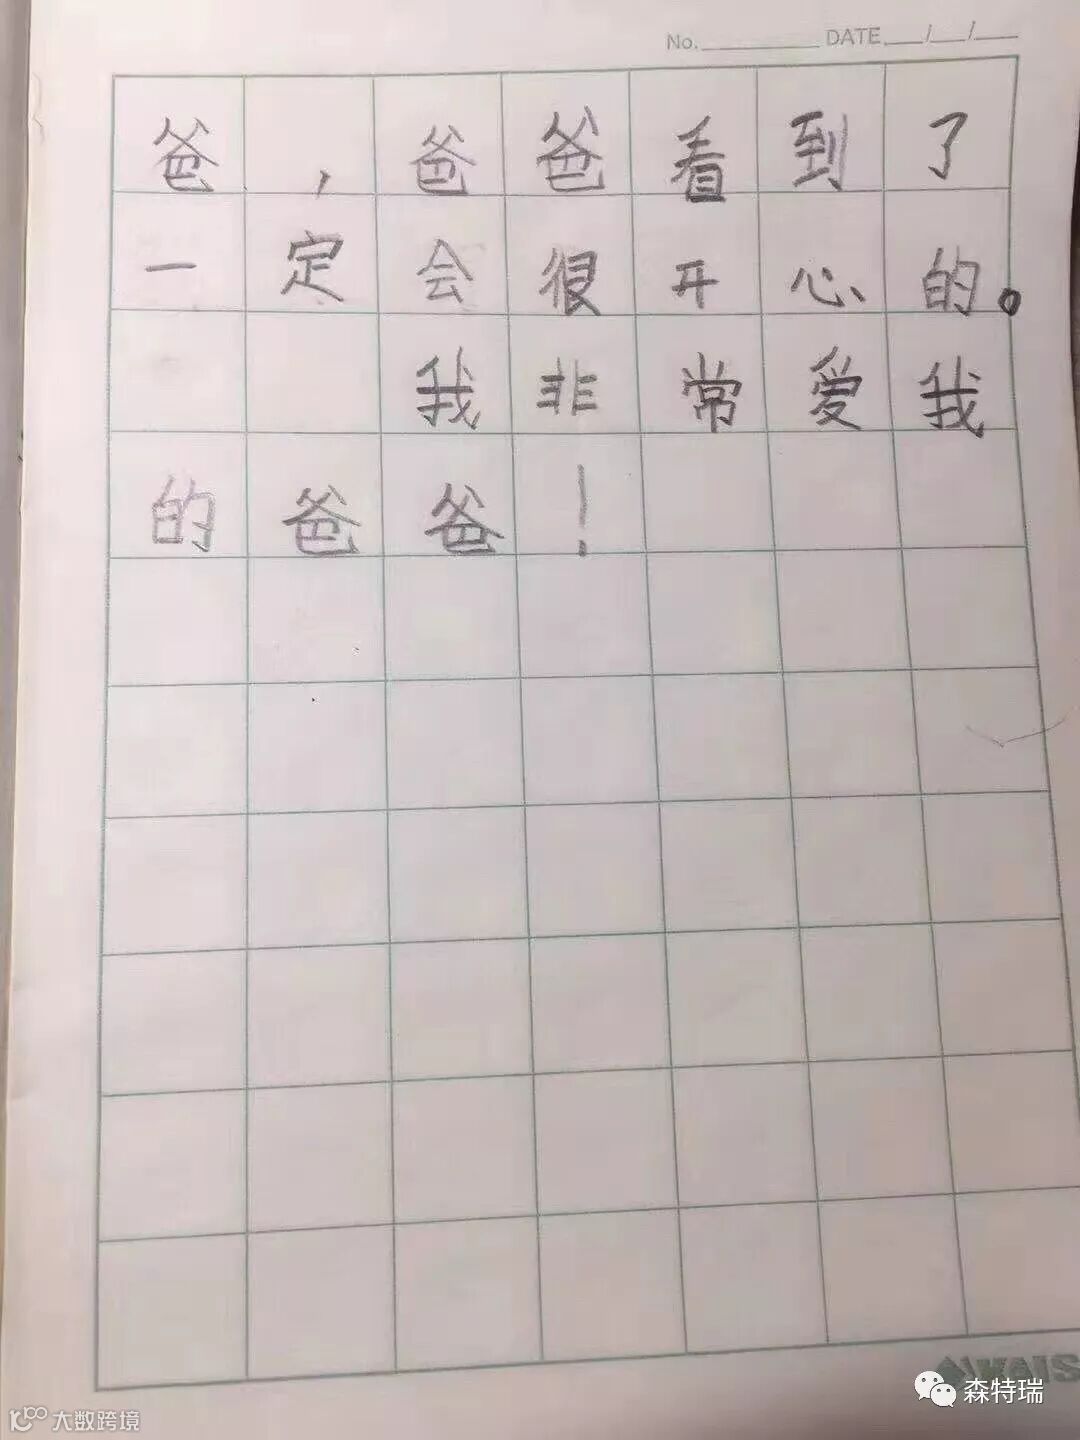 No. DATE / /
爸，爸爸看到了
一定会很开心的。
我非常爱我
的爸爸！
森特瑞
大数跨境